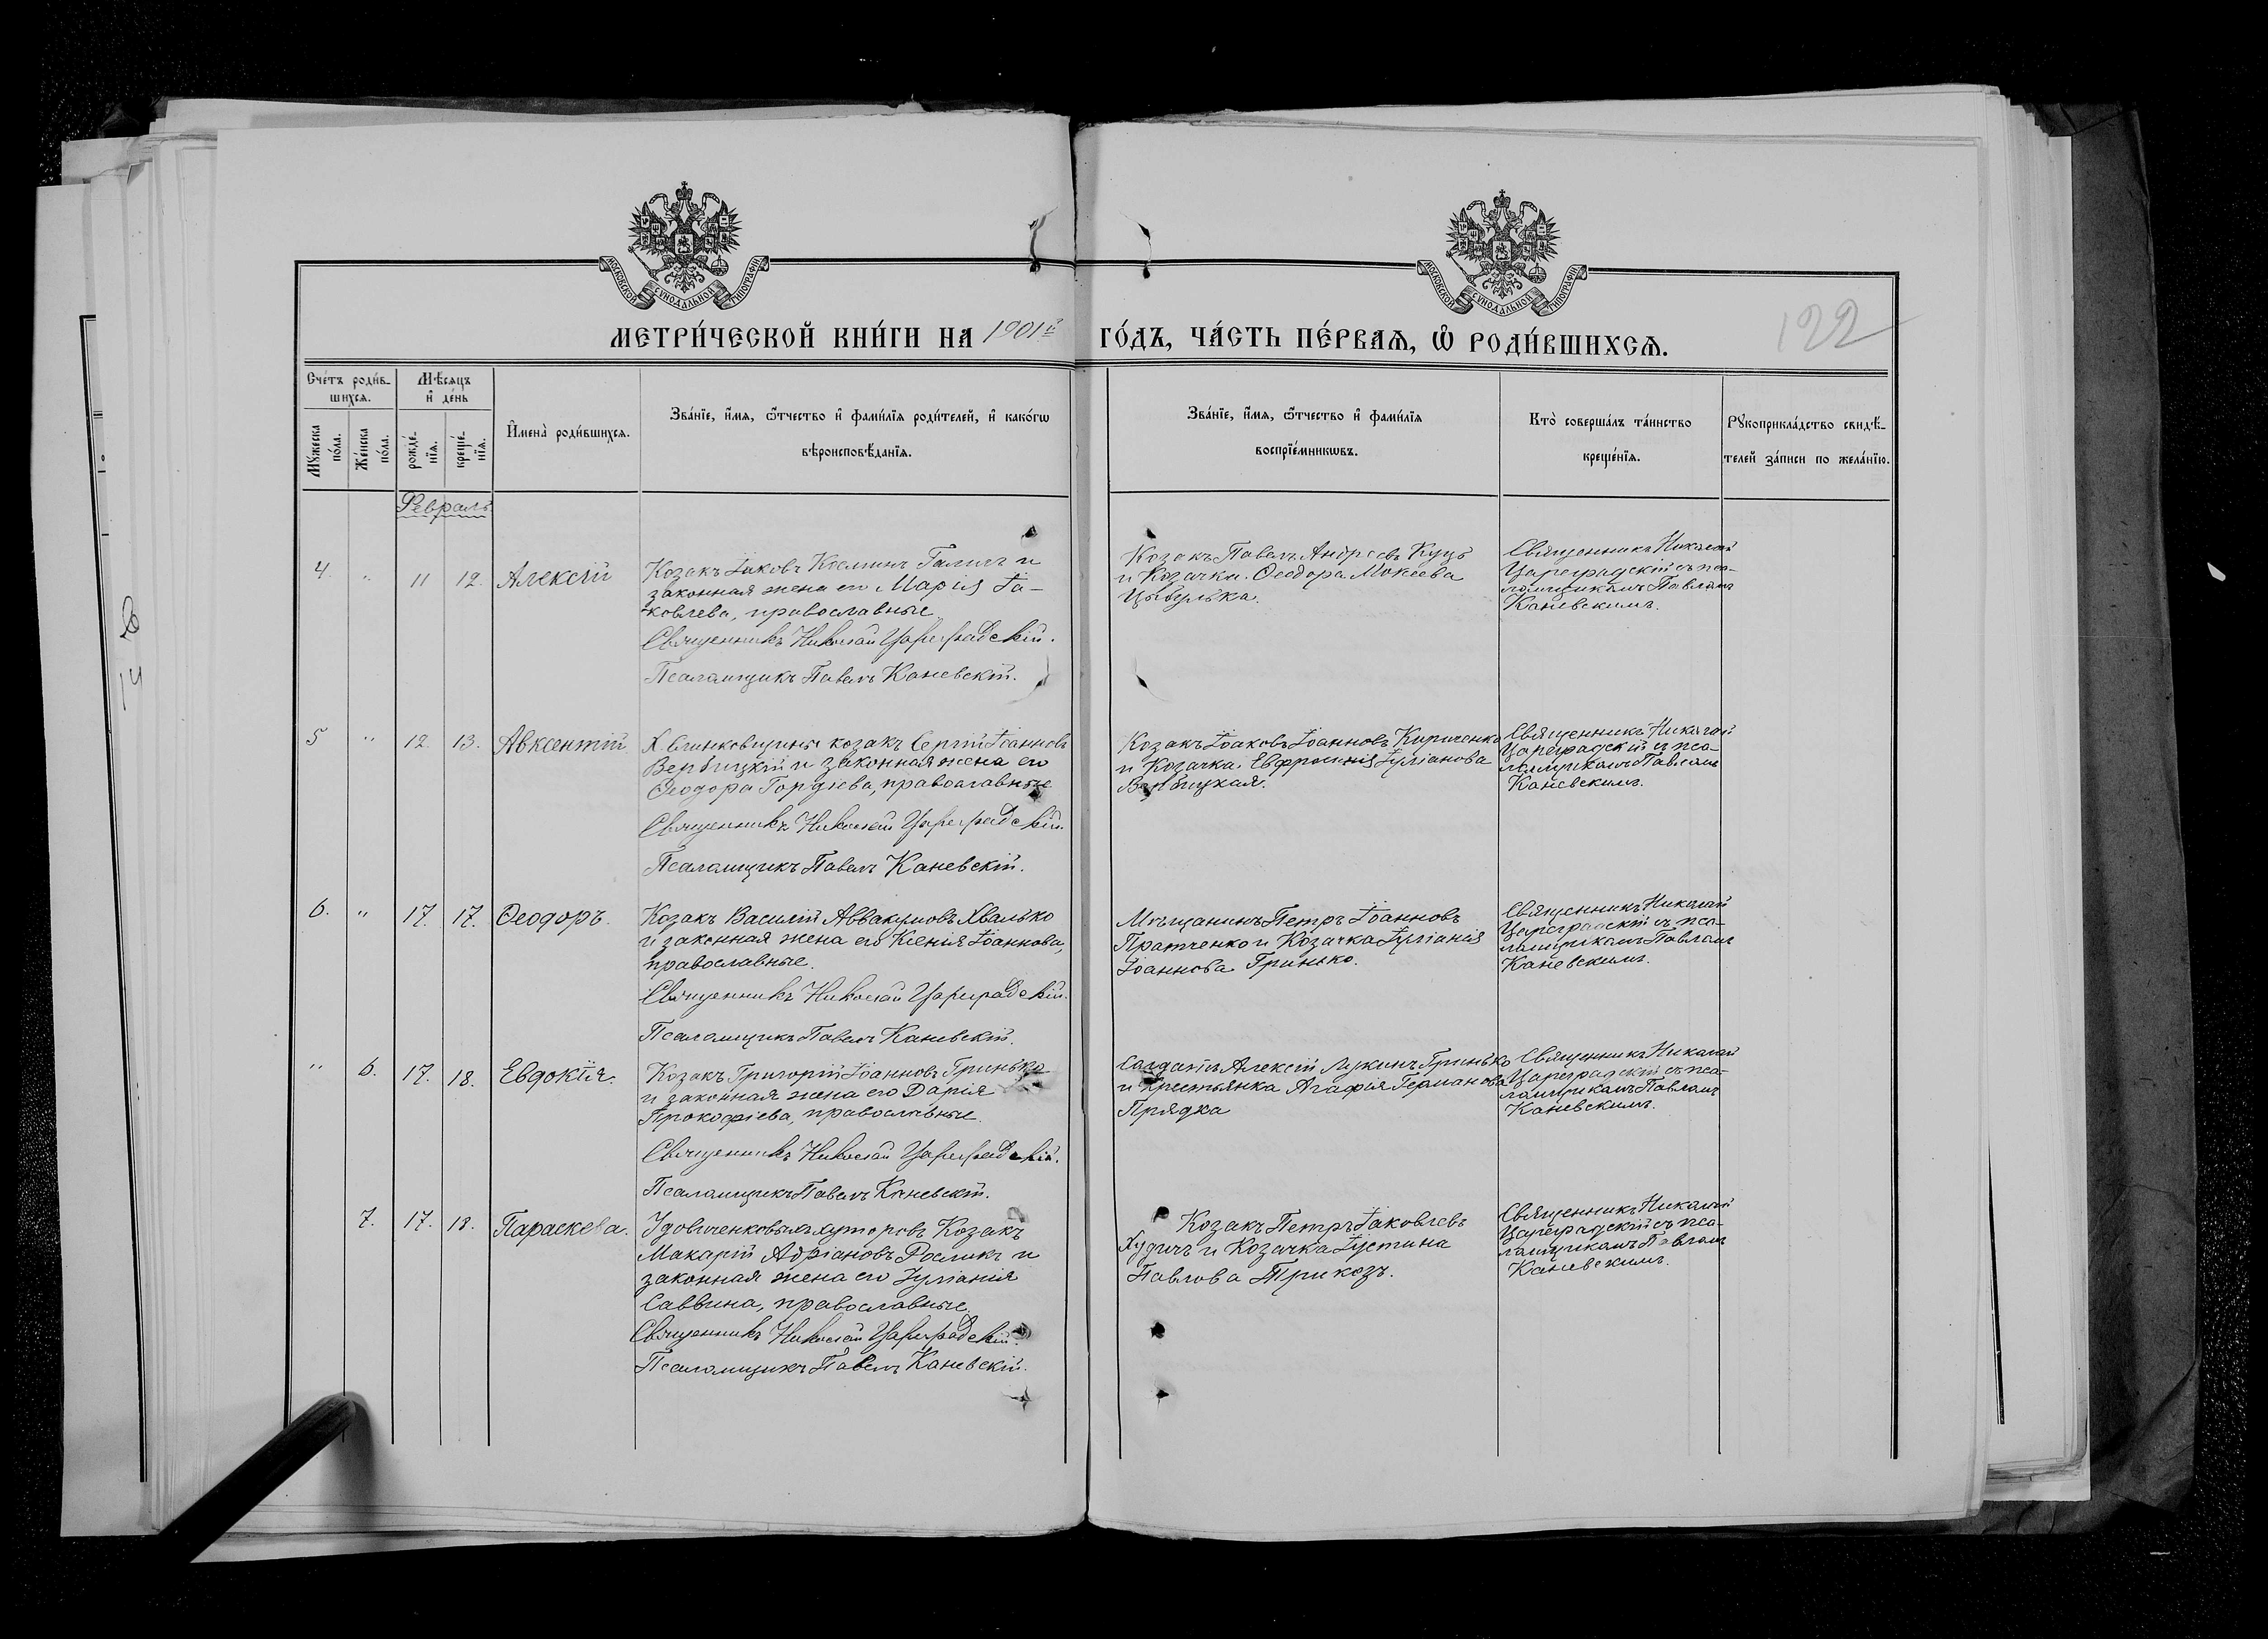 МОСКОВСКОЙ СУНОДАЛЬНОЙ ТИПОГРАФІИ
МОСКОВСКОЙ СУНОДАЛЬНОЙ ТИПОГРАФІИ
МЕТРИ́ЧЕСКОЙ КНИ́ГИ НА 1901й ГО́ДЪ, ЧА́СТЬ ПЕ́РВАѦ, Ѡ҆ РОДИ́ВШИХСѦ.
122
Сче́тъ роди́в-
шихсѧ.
Мѣ́сѧцъ
и҆ де́нь
Мꙋ́жеска
по́ла.
Же́нска
по́ла.
рожде́-
нїѧ.
креще́-
нїѧ.
И҆мена̀ роди́вшихсѧ.
Зва́нїе, и҆́мѧ, ѻ҆́тчество и҆ фами́лїѧ роди́телей, и҆ како́гѡ
вѣроисповѣ́данїѧ.
Зва́нїе, и҆́мѧ, ѻ҆́тчество и҆ фами́лїѧ
воспрїе́мникѡвъ.
Кто̀ соверша́лъ та́инство
креще́нїѧ.
Рꙋкоприкла́дство свидѣ́-
телей за́писи по жела́нїю.
Февраль
4. " 11 12. Алексій
Козакъ Іаковъ Косминъ Галичъ и
законная жена его Марія Іа-
ковлева, православные
Священникъ Николай Цареградскій.
Псаломщикъ Павелъ Каневскій.
Козакъ Павелъ Андреевъ Куцъ
и Козачка Ѳеодора Мокеева
Цыбулька.
Священникъ Николай
Цареградскій съ пса-
ломщикомъ Павломъ
Каневскимъ.
5 " 12. 13. Авксентій.
козакъ Сергій Іоанновъ
Вербицкій и законная жена его
Ѳеодора Гордіева, православные
Священникъ Николай Цареградскій.
Псаломщикъ Павелъ Каневскій.
Козакъ Іоаковъ Іоанновъ Кириченко
и Козачка Евфросинія Іуліанова
Вербицкая.
Священникъ Николай
Цареградскій съ пса-
ломщикомъ Павломъ
Каневскимъ.
6. " 17. 17. Ѳеодоръ.
Козакъ Василій Аввакумовъ Хвалько
и законная жена его Ксенія Іоаннова,
православные.
Священникъ Николай Цареградскій.
Псаломщикъ Павелъ Каневскій.
Мѣщанинъ Петръ Іоанновъ
Пратченко и Козачка Іуліанія
Іоаннова Гринько.
Священникъ Николай
Цареградскій съ пса-
ломщикомъ Павломъ
Каневскимъ.
" 6. 17. 18. Евдокія.
Козакъ Григорій Іоанновъ Гринько
и законная жена его Дарія
Прокофіева, православные.
Священникъ Николай Цареградскій.
Псаломщикъ Павелъ Каневскій.
Солдатъ Алексій Лукинъ Гринько
и Крестьянка Агафія Германова
Прядка
Священникъ Николай
Цареградскій съ пса-
ломщикомъ Павломъ
Каневскимъ.
7. 17. 18. Параскева.
Удовиченковыхъ хуторовъ Козакъ
Макарій Адріановъ Рослик и
законная жена его Іуліанія
Саввина, православные.
Священникъ Николай Цареградскій.
Псаломщикъ Павелъ Каневскій.
Козакъ Петръ Іаковлевъ
Худичъ и Козачка Іустина
Павлова Трикозъ.
Священникъ Николай
Цареградскій съ пса-
ломщикомъ Павломъ
Каневскимъ.